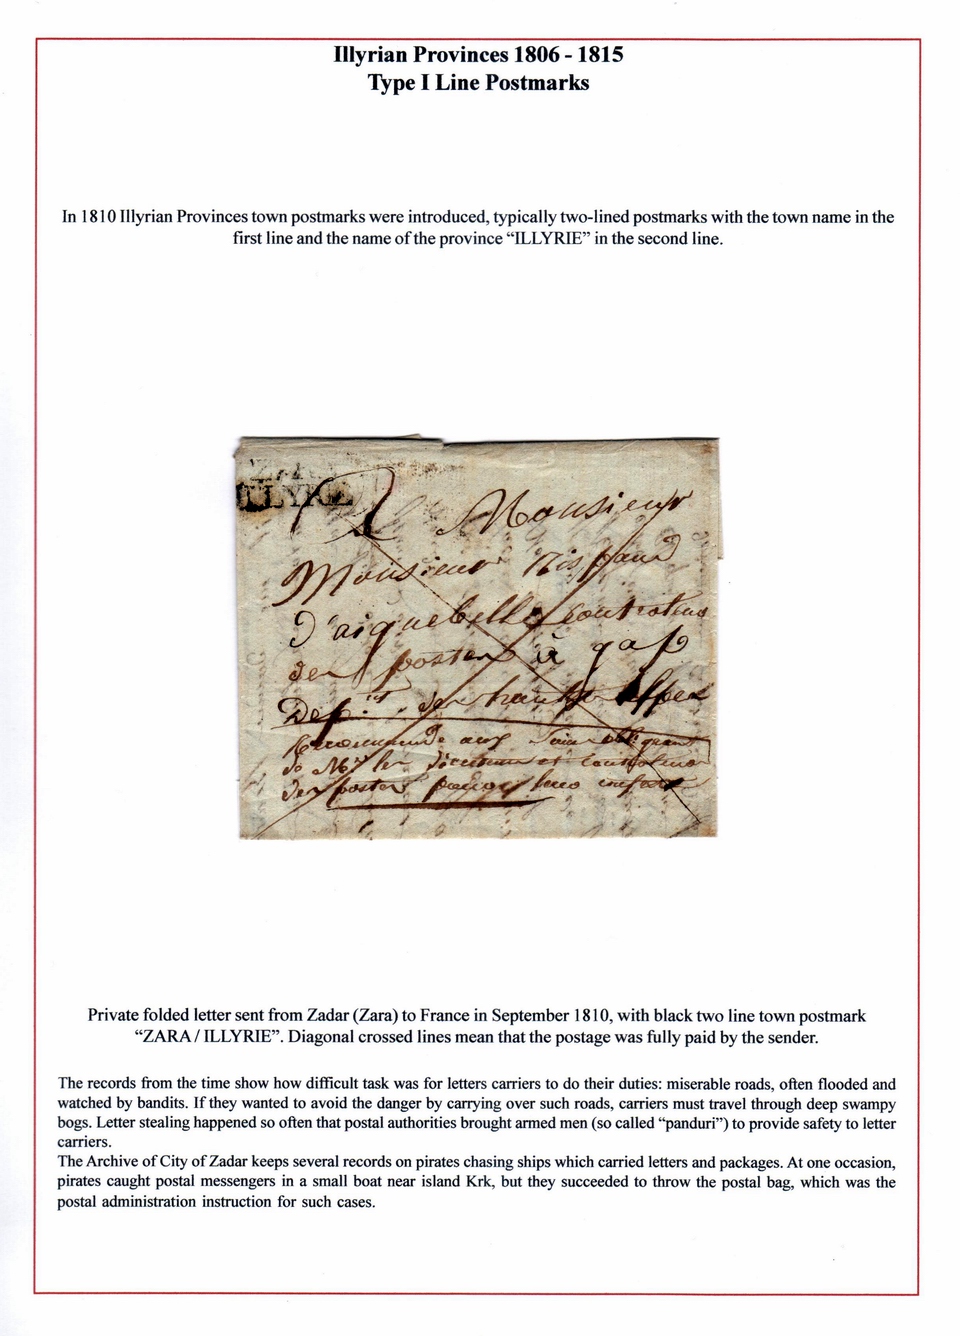 Illyrian Provinces 1806 - 1815
Type I Line Postmarks
In 1810 Illyrian Provinces town postmarks were introduced, typically two-lined postmarks with the town name in the
first line and the name of the province “ILLYRIE” in the second line.
ILLYRIE
Monsieur
Monsieur
D'aiguebelle
des postes à gap
Dep.nt des hautes alpes
des postes
Private folded letter sent from Zadar (Zara) to France in September 1810, with black two line town postmark
“ZARA / ILLYRIE”. Diagonal crossed lines mean that the postage was fully paid by the sender.
The records from the time show how difficult task was for letters carriers to do their duties: miserable roads, often flooded and
watched by bandits. If they wanted to avoid the danger by carrying over such roads, carriers must travel through deep swampy
bogs. Letter stealing happened so often that postal authorities brought armed men (so called “panduri”) to provide safety to letter
carriers.
The Archive of City of Zadar keeps several records on pirates chasing ships which carried letters and packages. At one occasion,
pirates caught postal messengers in a small boat near island Krk, but they succeeded to throw the postal bag, which was the
postal administration instruction for such cases.